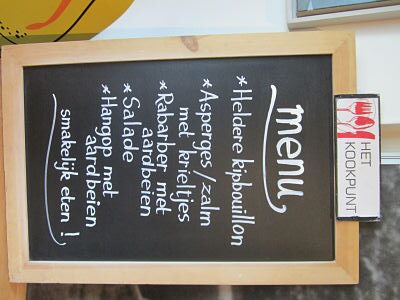 HET
KOOKPUNT
menu
*Heldere kipbouillon
*Asperges/zalm
met krieltjes
*Rabarber met
aardbeien
*Salade
*Hangop met
aardbeien
smakelijk eten!